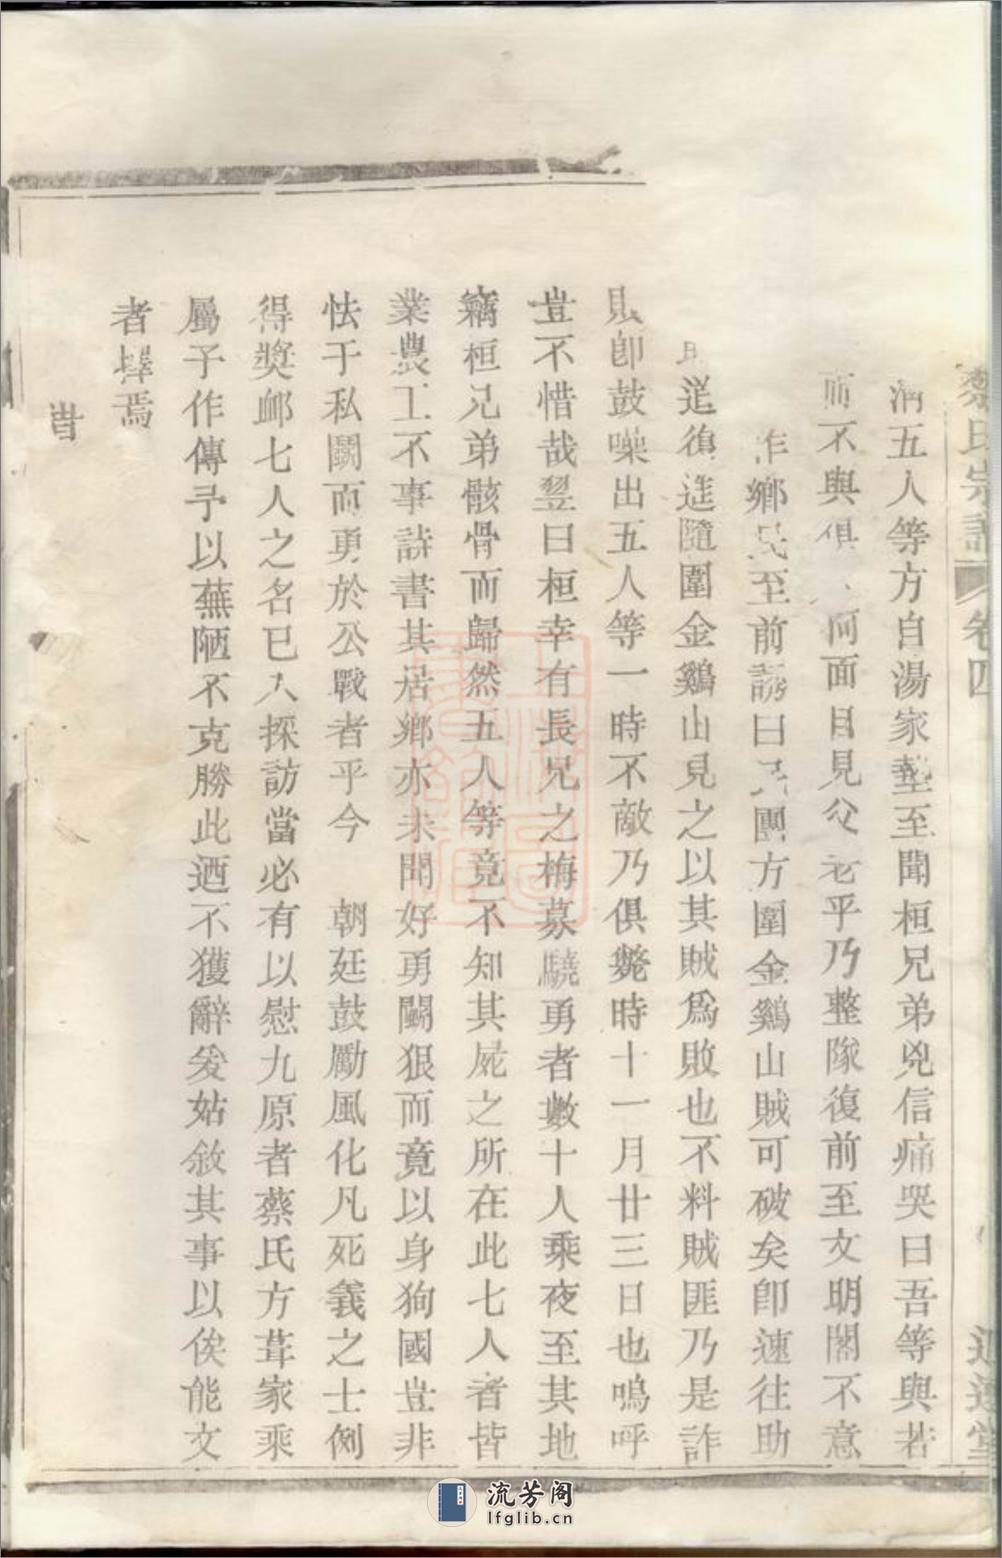 蔡氏宗譜 卷四
五人等方自湯家墊至聞桓兄弟兇信痛哭曰吾等與若
而不與俱何面目見父老乎乃整隊復前至文明閣不意
鄉民至前謊曰團方圍金鷄山賊可破矣即速往助
遂復進隨圍金鷄山見之以其賊爲敗也不料賊匪乃是詐
即鼓噪出五人等一時不敵乃俱斃時十一月廿三日也嗚呼
豈不惜哉翌日桓幸有長兄之梅募驍勇者數十人乘夜至其地
竊桓兄弟骸骨而歸然五人等竟不知其屍之所在此七人者皆
業農工不事詩書其居鄉亦未聞好勇鬭狠而竟以身狥國豈非
怯于私鬭而勇於公戰者乎今 朝廷鼓勵風化凡死義之士例
得奬卹七人之名已入探訪當必有以慰九原者蔡氏方葺家乘
屬予作傳予以蕪陋不克勝此迺不獲辭爰姑敘其事以俟能文
者擇焉
流芳阁
lfglib.cn